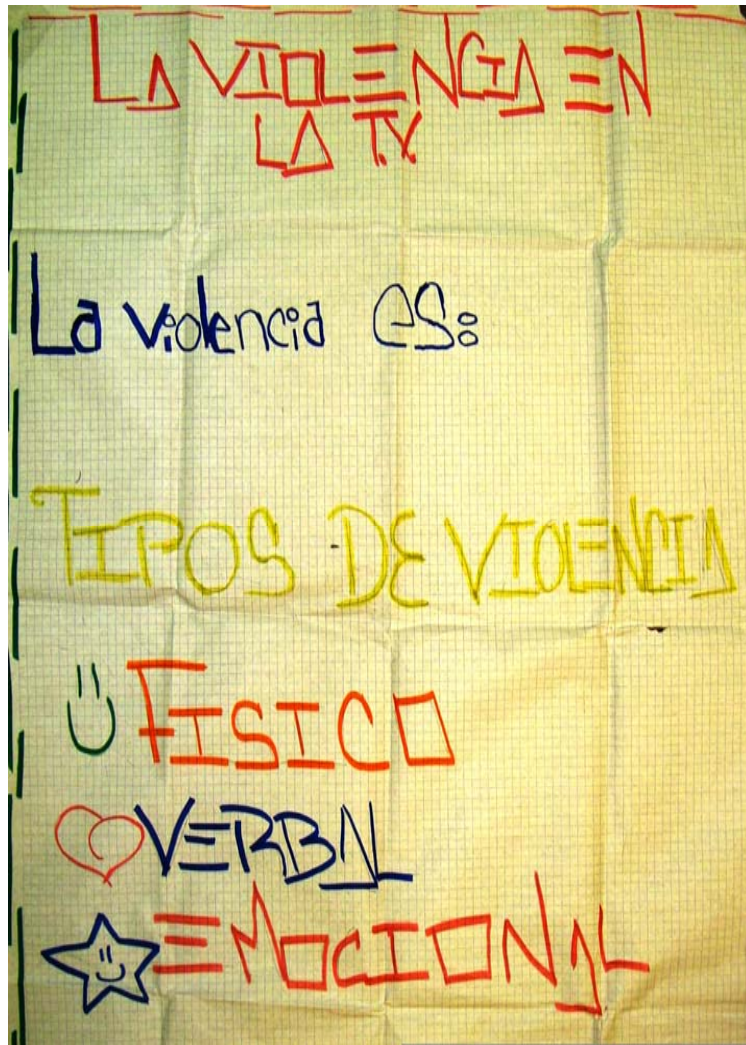 LA VIOLENCIA EN
LA T.V.
La violencia es:
TIPOS DE VIOLENCIA
FISICO
VERBAL
EMOCIONAL